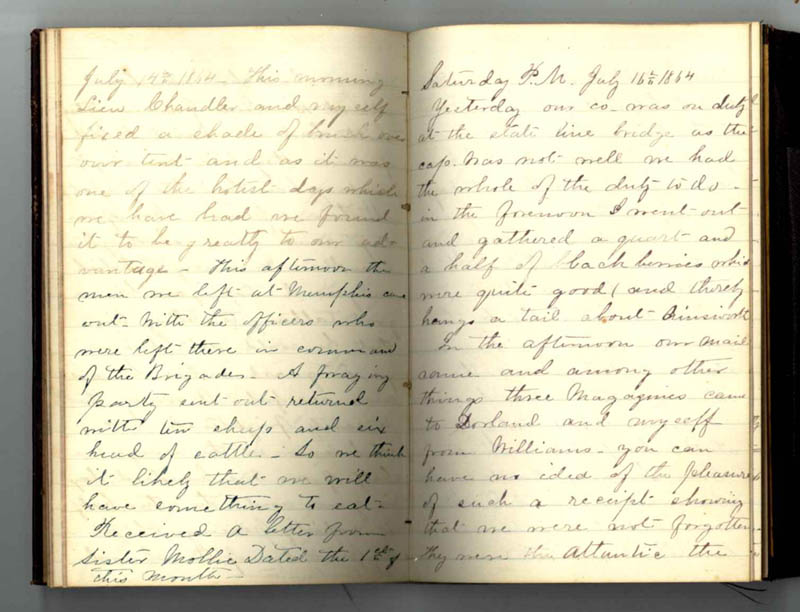 July 14th 1864. This morning
Lieu Chandler and myself
fixed a shade of brush over
our tent and as it was
one of the hotest days which
we have had we found
it to be greatly to our ad-
vantage - This afternoon the
men we left at Memphis came
out - With the officers who
were left there in command
of the Brigades - A foraging
party sent out returned
with ten sheep and six
head of cattle - So we think
it likely that we will
have something to eat -
Received a letter from
sister Mollie Dated the 1st of
this month -
Saturday P.M. July 16th 1864
Yesterday our co. was on duty
at the state line bridge as the
cap. was not well we had
the whole of the duty to do -
in the forenoon I went out
and gathered a quart and
a half of black berries which
were quite good (and thereby
hangs a tail about Ainsworth
In the afternoon our mail
came and among other
things three Magazines came
to Dorland and myself
from Williams - you can
have no idea of the pleasure
of such a receipt showing
that we were not forgotten
They were the Atlantic the